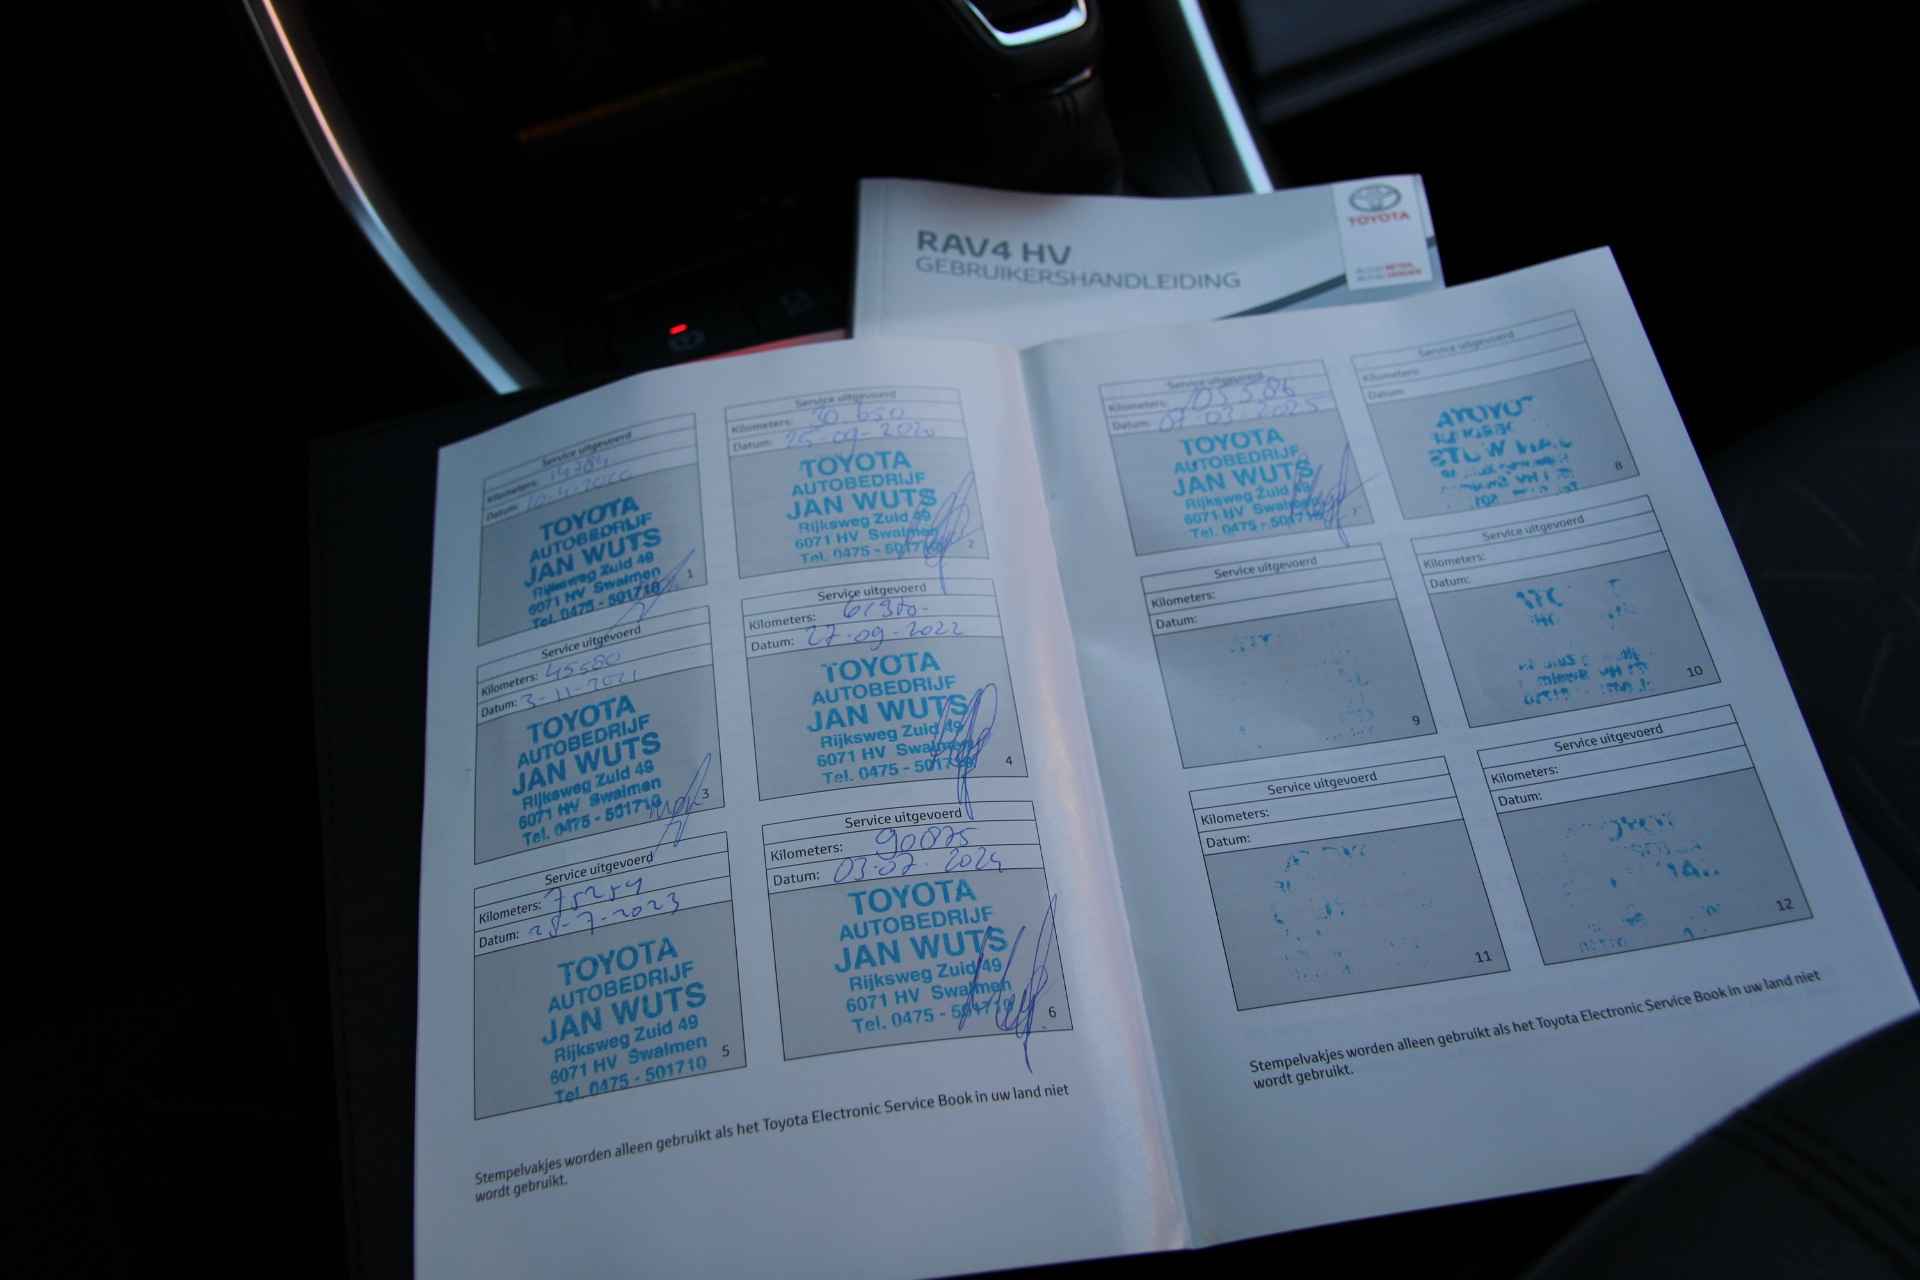 RAV4 HV
GEBRUIKERSHANDLEIDING
TOYOTA
Service uitgevoerd
Kilometers:
Datum:
TOYOTA
AUTOBEDRIJF
JAN WUTS
Rijksweg Zuid 49
6071 HV Swalmen
Tel. 0475 - 501710
1
Service uitgevoerd
Kilometers: 30.650
Datum: 25-09-2020
TOYOTA
AUTOBEDRIJF
JAN WUTS
Rijksweg Zuid 49
6071 HV Swalmen
Tel. 0475 - 501710
2
Service uitgevoerd
Kilometers: 45580
Datum: 3-11-2021
TOYOTA
AUTOBEDRIJF
JAN WUTS
Rijksweg Zuid 49
6071 HV Swalmen
Tel. 0475 - 501710
3
Service uitgevoerd
Kilometers:
Datum: 27-09-2022
TOYOTA
AUTOBEDRIJF
JAN WUTS
Rijksweg Zuid 49
6071 HV Swalmen
Tel. 0475 - 501710
4
Service uitgevoerd
Kilometers: 75254
Datum: 28-7-2023
TOYOTA
AUTOBEDRIJF
JAN WUTS
Rijksweg Zuid 49
6071 HV Swalmen
Tel. 0475 - 501710
5
Service uitgevoerd
Kilometers: 90875
Datum: 03-07-2024
TOYOTA
AUTOBEDRIJF
JAN WUTS
Rijksweg Zuid 49
6071 HV Swalmen
Tel. 0475 - 501710
6
Stempelvakjes worden alleen gebruikt als het Toyota Electronic Service Book in uw land niet
wordt gebruikt.
Service uitgevoerd
Kilometers: 105586
Datum: 07-03-2025
TOYOTA
AUTOBEDRIJF
JAN WUTS
Rijksweg Zuid 49
6071 HV Swalmen
Tel. 0475 - 501710
7
Service uitgevoerd
Kilometers:
Datum:
8
Service uitgevoerd
Kilometers:
Datum:
9
Service uitgevoerd
Kilometers:
Datum:
10
Service uitgevoerd
Kilometers:
Datum:
11
Service uitgevoerd
Kilometers:
Datum:
12
Stempelvakjes worden alleen gebruikt als het Toyota Electronic Service Book in uw land niet
wordt gebruikt.